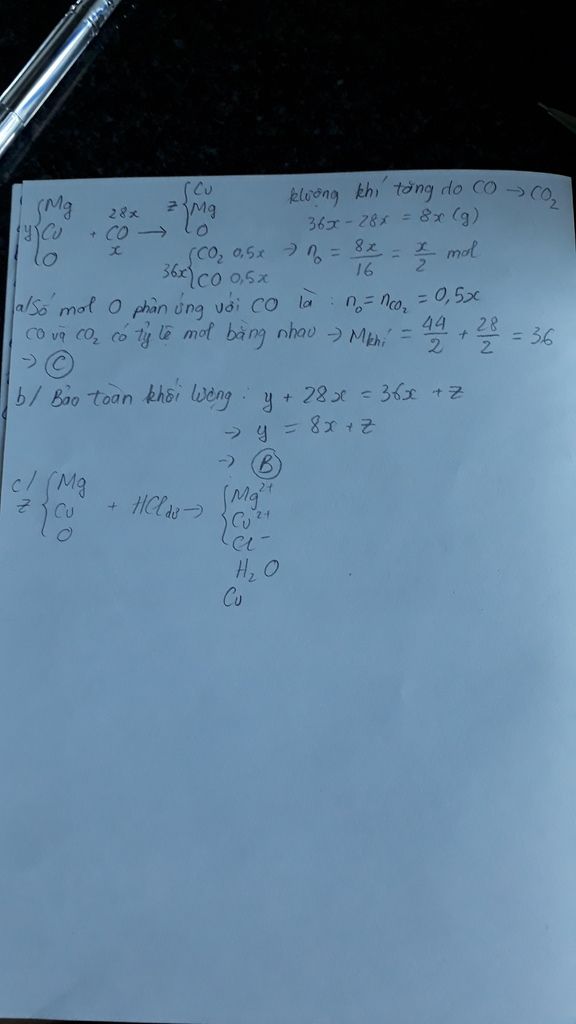 y { Mg Cu O + 28x CO x → z { Cu Mg O
36x { CO₂ 0,5x CO 0,5x
klượng khí tăng do CO → CO₂
36x - 28x = 8x (g)
→ nₒ = 8x/16 = x/2 mol
a/ Số mol O phản ứng với CO là : nₒ = nCO₂ = 0,5x
CO và CO₂ có tỷ lệ mol bằng nhau → Mkhí = 44/2 + 28/2 = 36
→ Ⓒ
b/ Bảo toàn khối lượng : y + 28x = 36x + z
→ y = 8x + z
→ Ⓑ
c/ z { Mg Cu O + HCl dư → { Mg²⁺ Cu²⁺ Cl⁻
H₂O
Cu